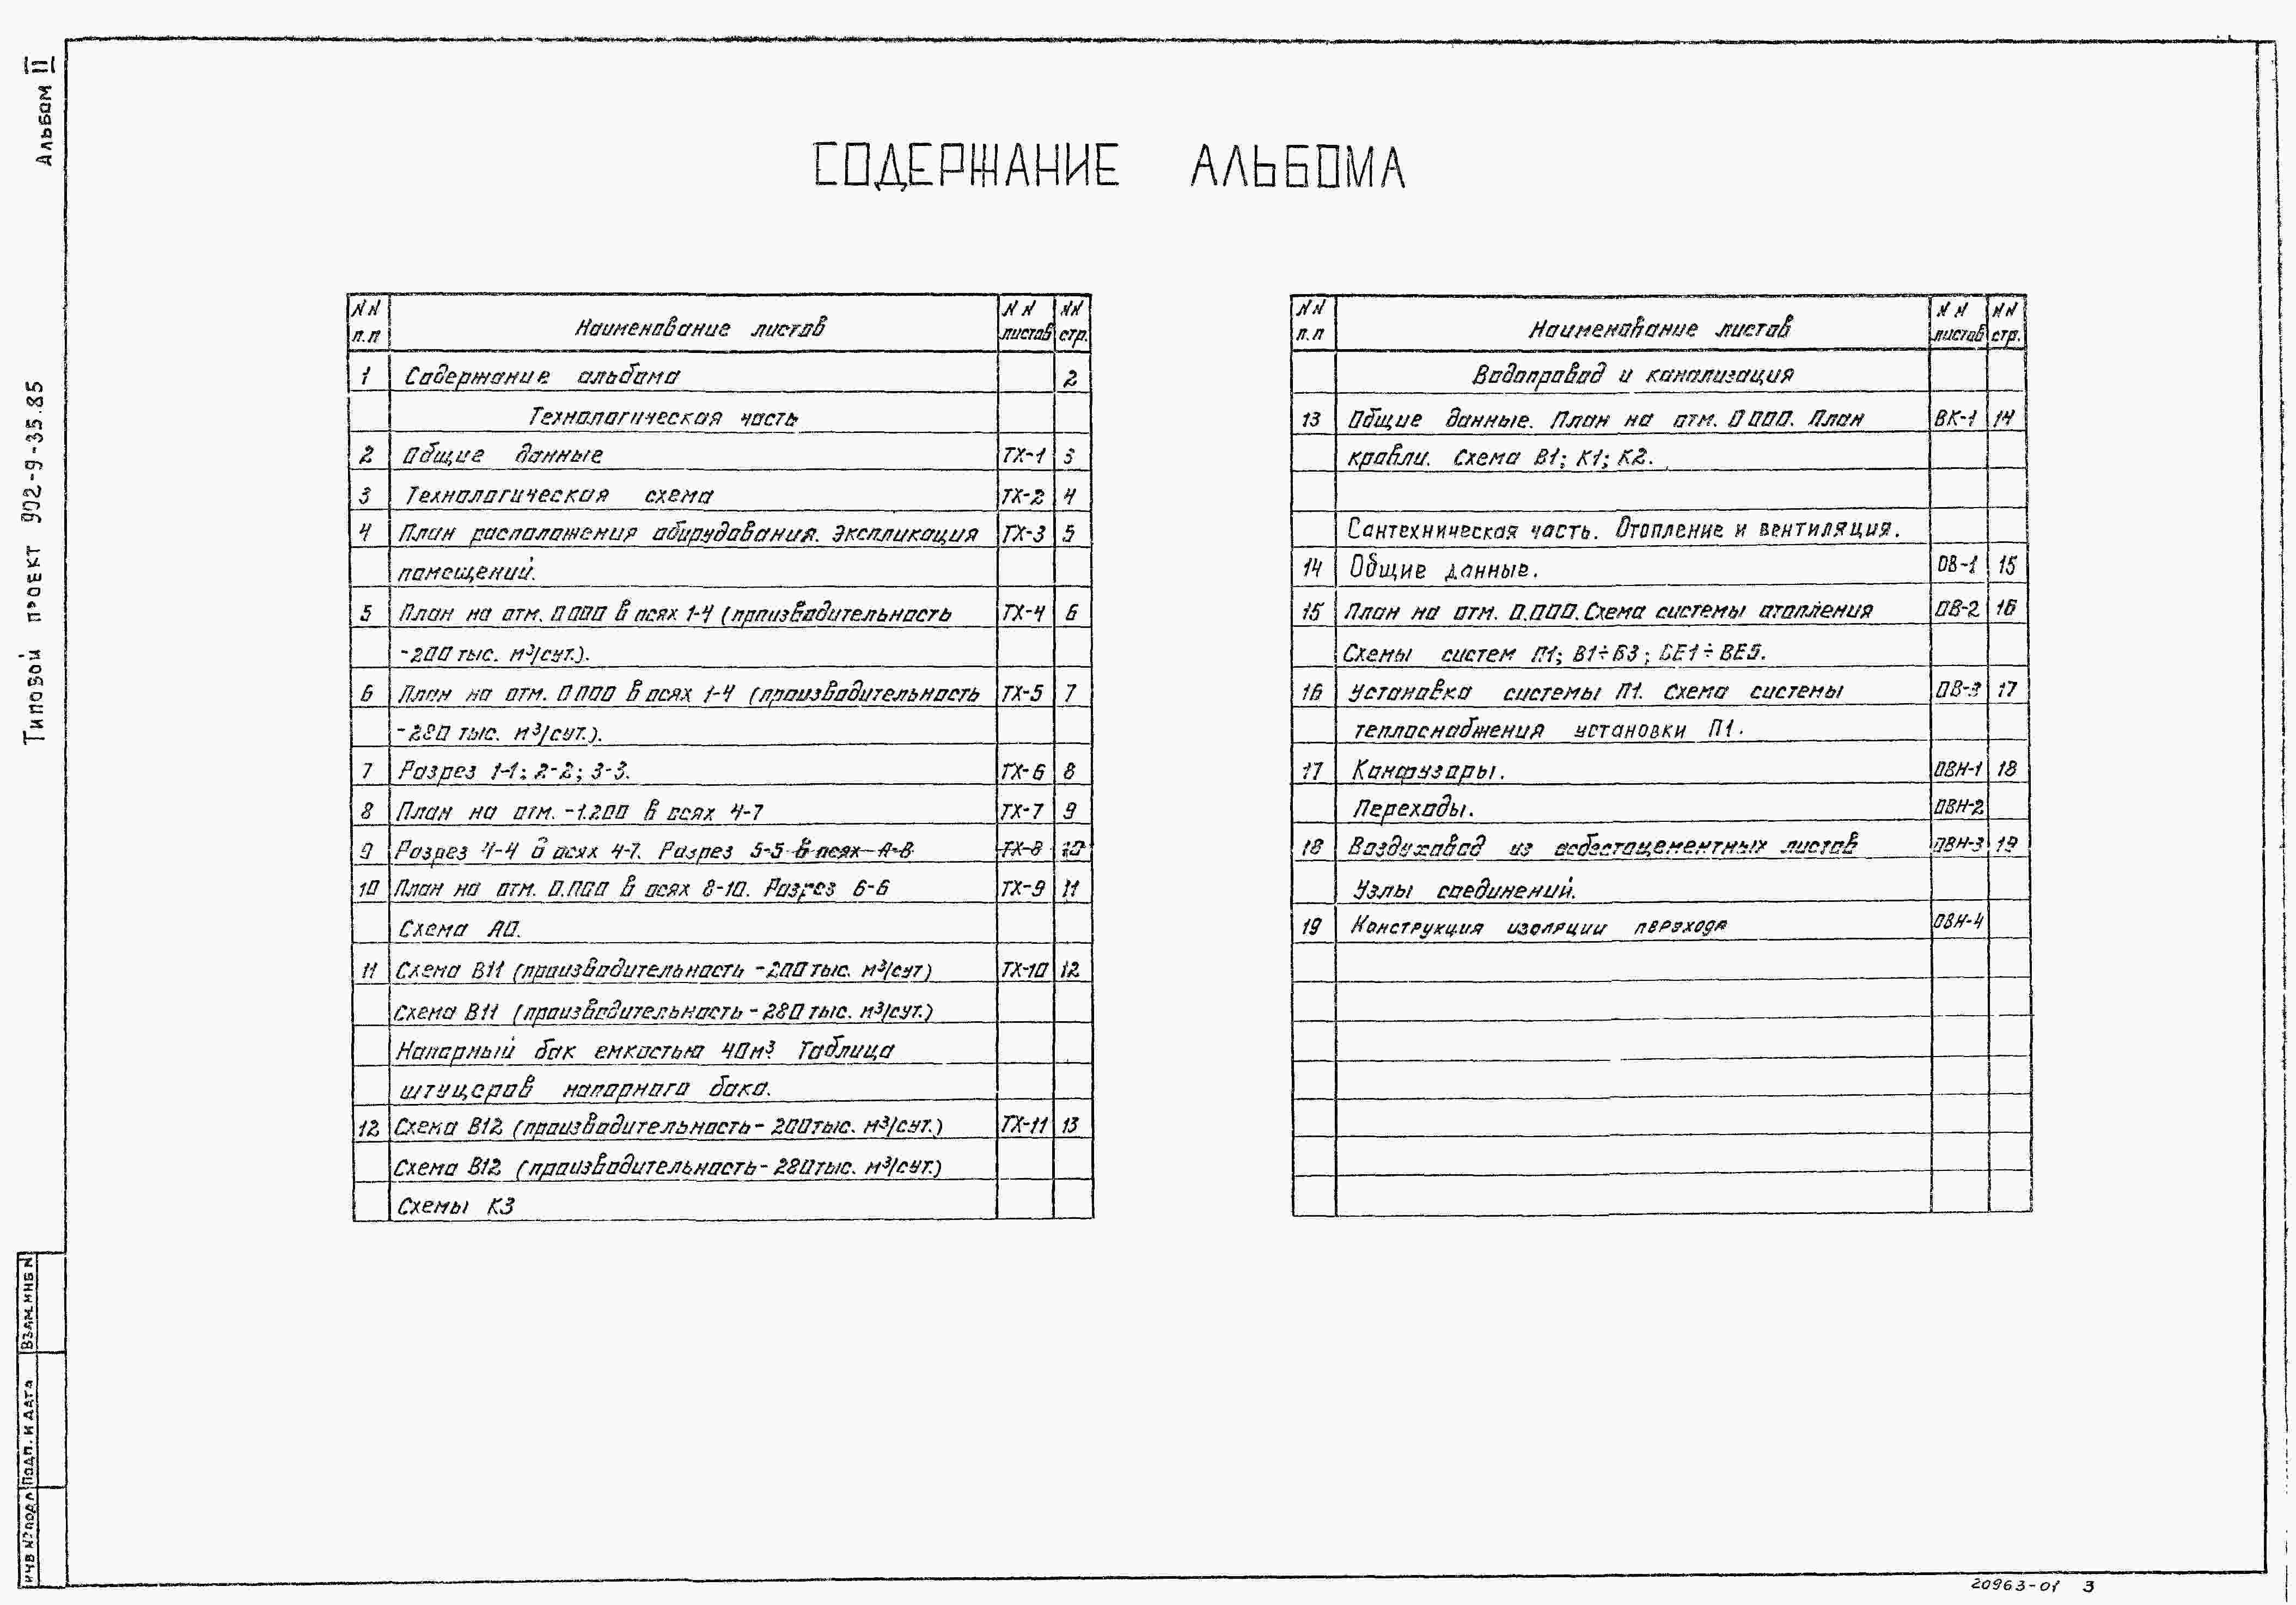 Альбом II
Типовой проект 902-9-35.85
СОДЕРЖАНИЕ АЛЬБОМА
NN п.п Наименование листов NN листов NN стр.
1 Содержание альбома 2
Технологическая часть
2 Общие данные ТХ-1 3
3 Технологическая схема ТХ-2 4
4 План расположения оборудования. Экспликация ТХ-3 5
помещений.
5 План на отм. 0.000 в осях 1-4 (производительность ТХ-4 6
-200 тыс. м³/сут.).
6 План на отм. 0.000 в осях 1-4 (производительность ТХ-5 7
-280 тыс. м³/сут.).
7 Разрез 1-1; 2-2; 3-3. ТХ-6 8
8 План на отм. -1.200 в осях 4-7 ТХ-7 9
9 Разрез 4-4 в осях 4-7. Разрез 5-5 в осях А-В ТХ-8 10
10 План на отм. 0.000 в осях 8-10. Разрез 6-6 ТХ-9 11
Схема А0.
11 Схема В11 (производительность -200 тыс. м³/сут) ТХ-10 12
Схема В11 (производительность - 280 тыс. м³/сут.)
Напорный бак емкостью 40м³ Таблица
штуцеров напорного бака.
12 Схема В12 (производительность - 200тыс. м³/сут.) ТХ-11 13
Схема В12 (производительность - 280тыс. м³/сут.)
Схемы К3
NN п.п Наименование листов NN листов NN стр.
Водопровод и канализация
13 Общие данные. План на отм. 0.000. План ВК-1 14
кровли. Схема В1; К1; К2.
Сантехническая часть. Отопление и вентиляция.
14 Общие данные. ОВ-1 15
15 План на отм. 0.000. Схема системы отопления ОВ-2 16
Схемы систем П1; В1÷В3; ВЕ1÷ВЕ5.
16 Установка системы П1. Схема системы ОВ-3 17
теплоснабжения установки П1.
17 Конфузоры. ОВН-1 18
Переходы. ОВН-2
18 Воздуховод из асбестоцементных листов ОВН-3 19
Узлы соединений.
19 Конструкция изоляции перехода ОВН-4
Взам.инв N
Подп. и дата
Инв № подл
20963-01 3